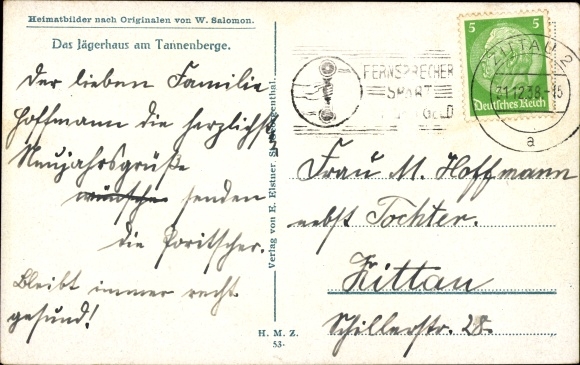 Heimatbilder nach Originalen von W. Salomon.
Das Jägerhaus am Tannenberge.
Der lieben Familie
Hoffmann die herzlichst
Neujahrsgrüße
wünsche senden
die Poritscher.
Bleibt immer recht
gesund!
Verlag von E. Elstner
H. M. Z.
53.
FERNSPRECHER
SPART
GELD
5 5
Deutsches Reich
ZITTAU 2
31.12.38.-15
a
Frau M. Hoffmann
nebst Tochter.
Zittau
Schillerstr. 28.